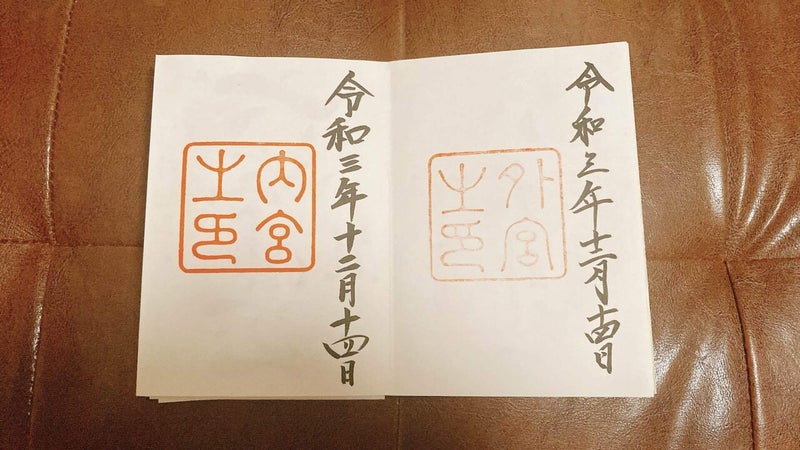 令和三年十二月十四日
外宮
之印
令和三年十二月十四日
内宮
之印